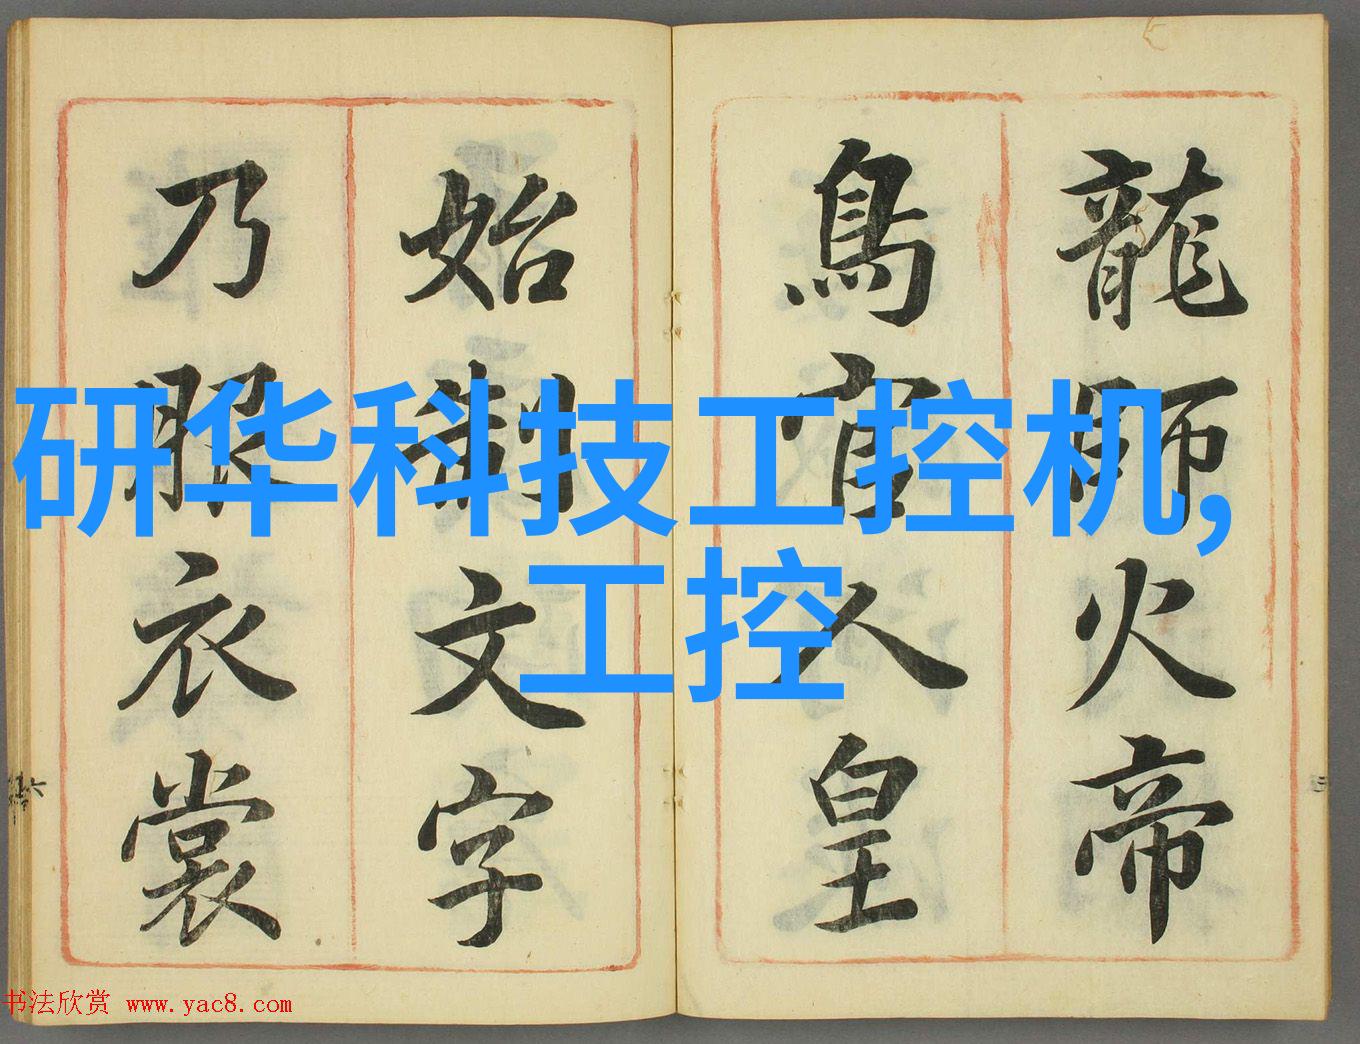 龍師火帝
鳥官人皇
始制文字
乃服衣裳
研华科技工控机,
工控
书法欣赏 www.yac8.com